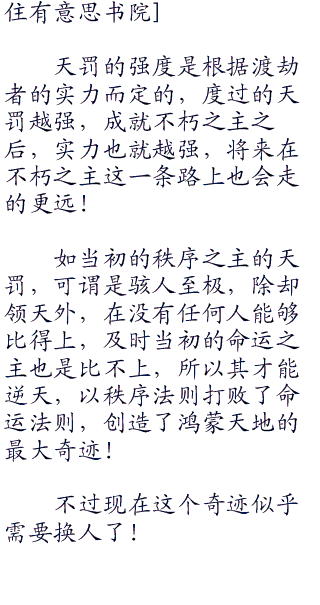 住有意思书院]
天罚的强度是根据渡劫
者的实力而定的，度过的天
罚越强，成就不朽之主之
后，实力也就越强，将来在
不朽之主这一条路上也会走
的更远！
如当初的秩序之主的天
罚，可谓是骇人至极，除却
领天外，在没有任何人能够
比得上，及时当初的命运之
主也是比不上，所以其才能
逆天，以秩序法则打败了命
运法则，创造了鸿蒙天地的
最大奇迹！
不过现在这个奇迹似乎
需要换人了！